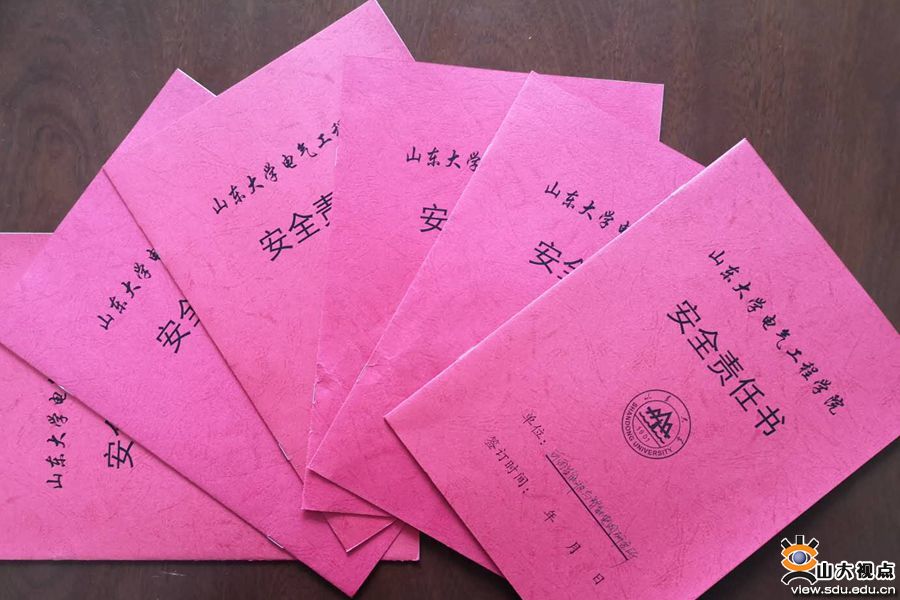 山东大学电
安全
山东大学电
安全
山东大学电气工程
安全责
山东大学
安
山东大学电气
安全
山东大学电气工程学院
安全责任书
SHANDONG UNIVERSITY
1901
单位：
签订时间：
年
月
日
山大视点
view.sdu.edu.cn